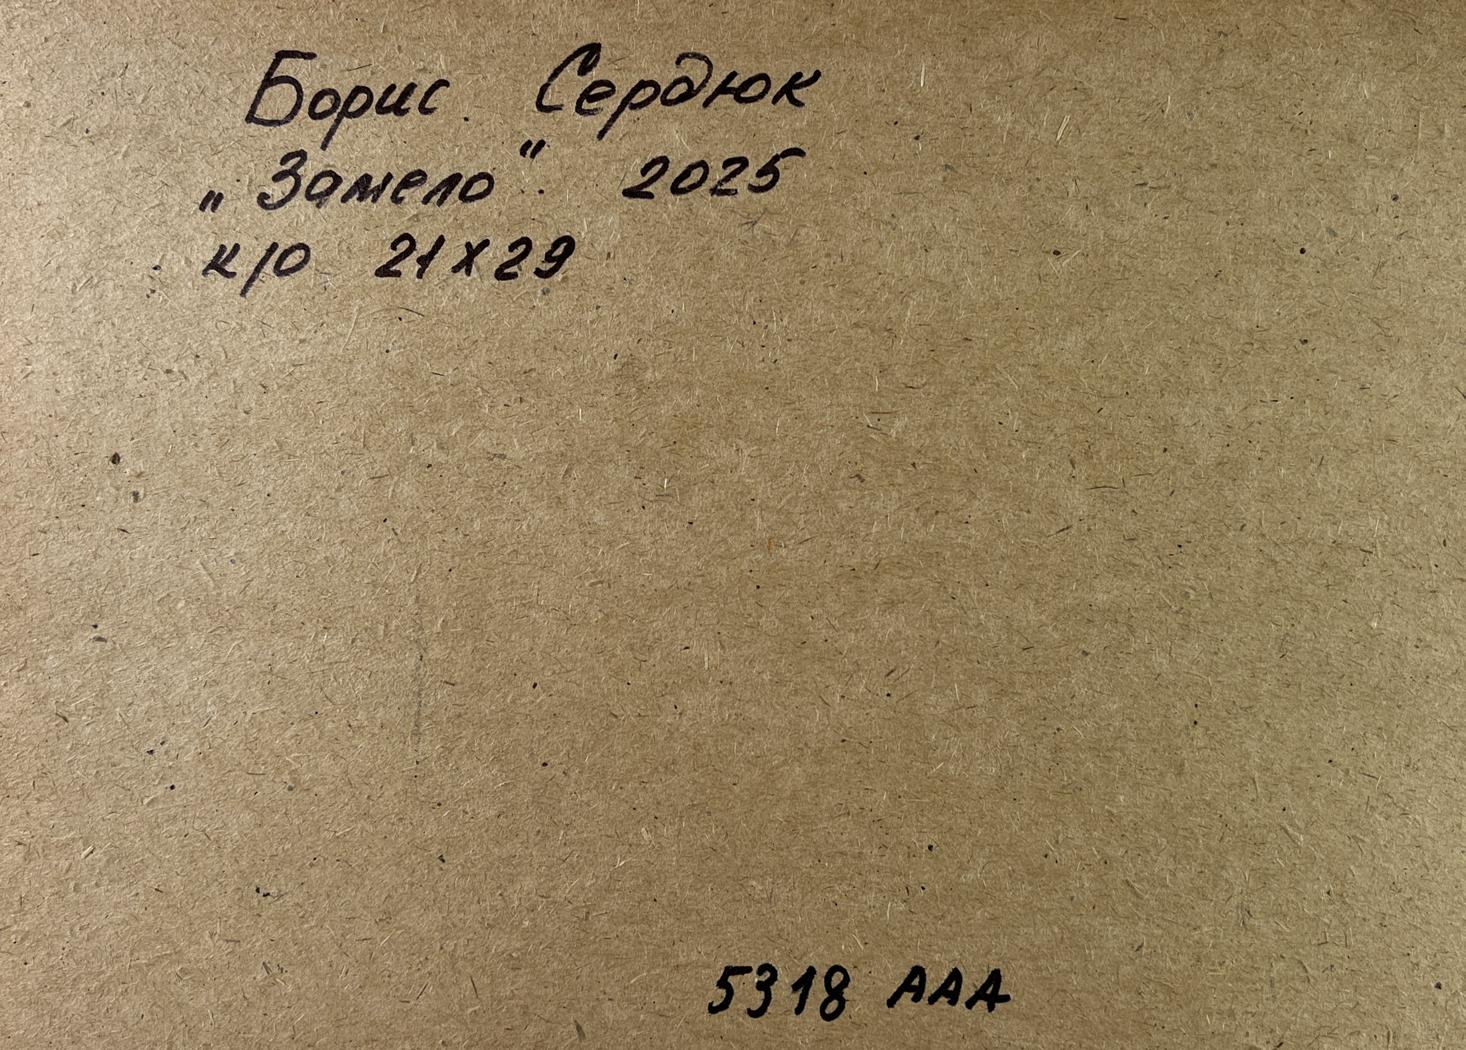 Борис Сердюк
„Замело" 2025
к/о 21х29
5318 ААА